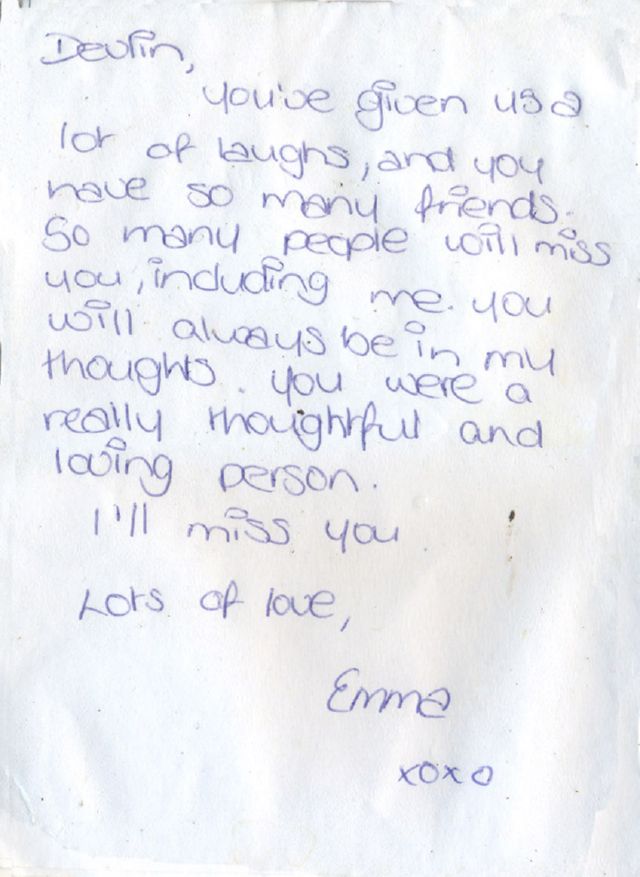 Devlin,
You've given us a
lot of laughs, and you
have so many friends.
So many people will miss
you, including me. You
will always be in my
thoughts. You were a
really thoughtful and
loving person.
I'll miss you
Lots of love,
Emma
xoxo